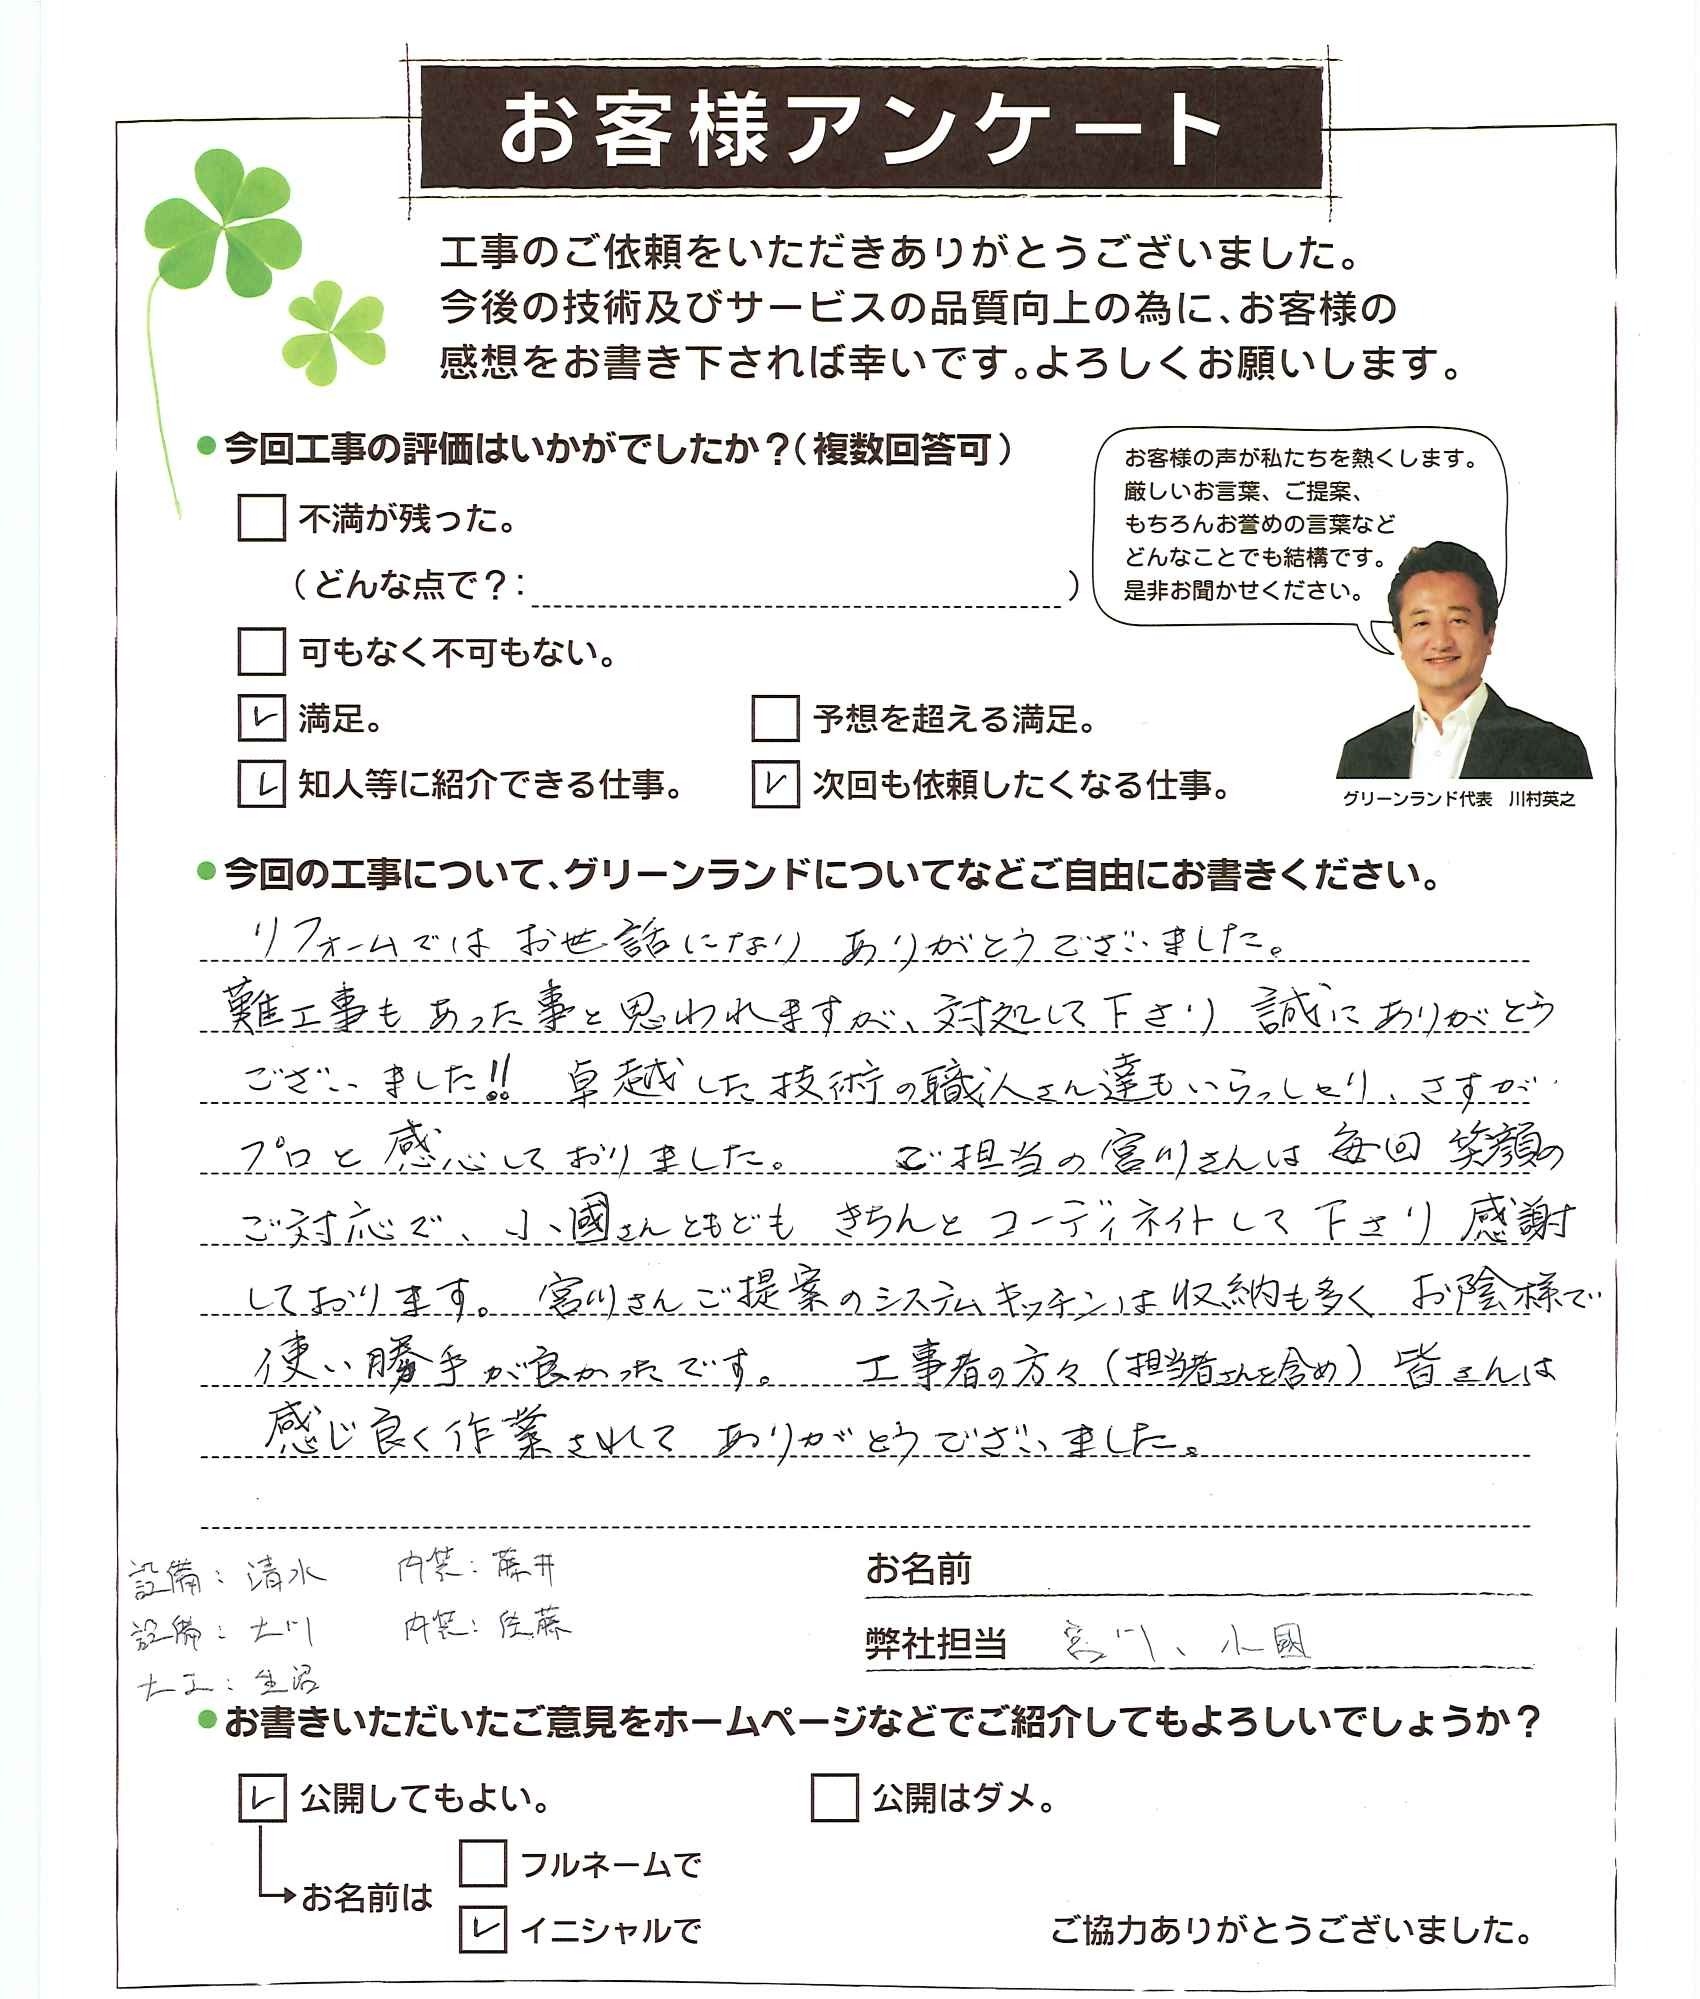 お客様アンケート
工事のご依頼をいただきありがとうございました。
今後の技術及びサービスの品質向上の為に、お客様の
感想をお書き下されば幸いです。よろしくお願いします。
●今回工事の評価はいかがでしたか？（複数回答可）
不満が残った。
（どんな点で？：　）
可もなく不可もない。
満足。
予想を超える満足。
知人等に紹介できる仕事。
次回も依頼したくなる仕事。
お客様の声が私たちを熱くします。
厳しいお言葉、ご提案、
もちろんお誉めの言葉など
どんなことでも結構です。
是非お聞かせください。
グリーンランド代表　川村英之
●今回の工事について、グリーンランドについてなどご自由にお書きください。
リフォームではお世話になり ありがとうございました。
難工事もあった事と思われますが、対処して下さり 誠にありがとう
ございました!! 卓越した技術の職人さん達もいらっしゃり、さすが
プロと感心しておりました。 ご担当の宮川さんは毎回 笑顔の
ご対応で、小國さんともども きちんと コーディネイトして下さり 感謝
しております。宮川さんご提案のシステムキッチンは収納も多く お陰様で
使い勝手が良かったです。 工事者の方々（担当者さんを含め）皆さんは
感じ良く作業されて ありがとうございました。
設備：清水　内装：藤井
設備：大川　内装：佐藤
大工：生沼
お名前
弊社担当　宮川、小國
●お書きいただいたご意見をホームページなどでご紹介してもよろしいでしょうか？
公開してもよい。
公開はダメ。
お名前は
フルネームで
イニシャルで
ご協力ありがとうございました。